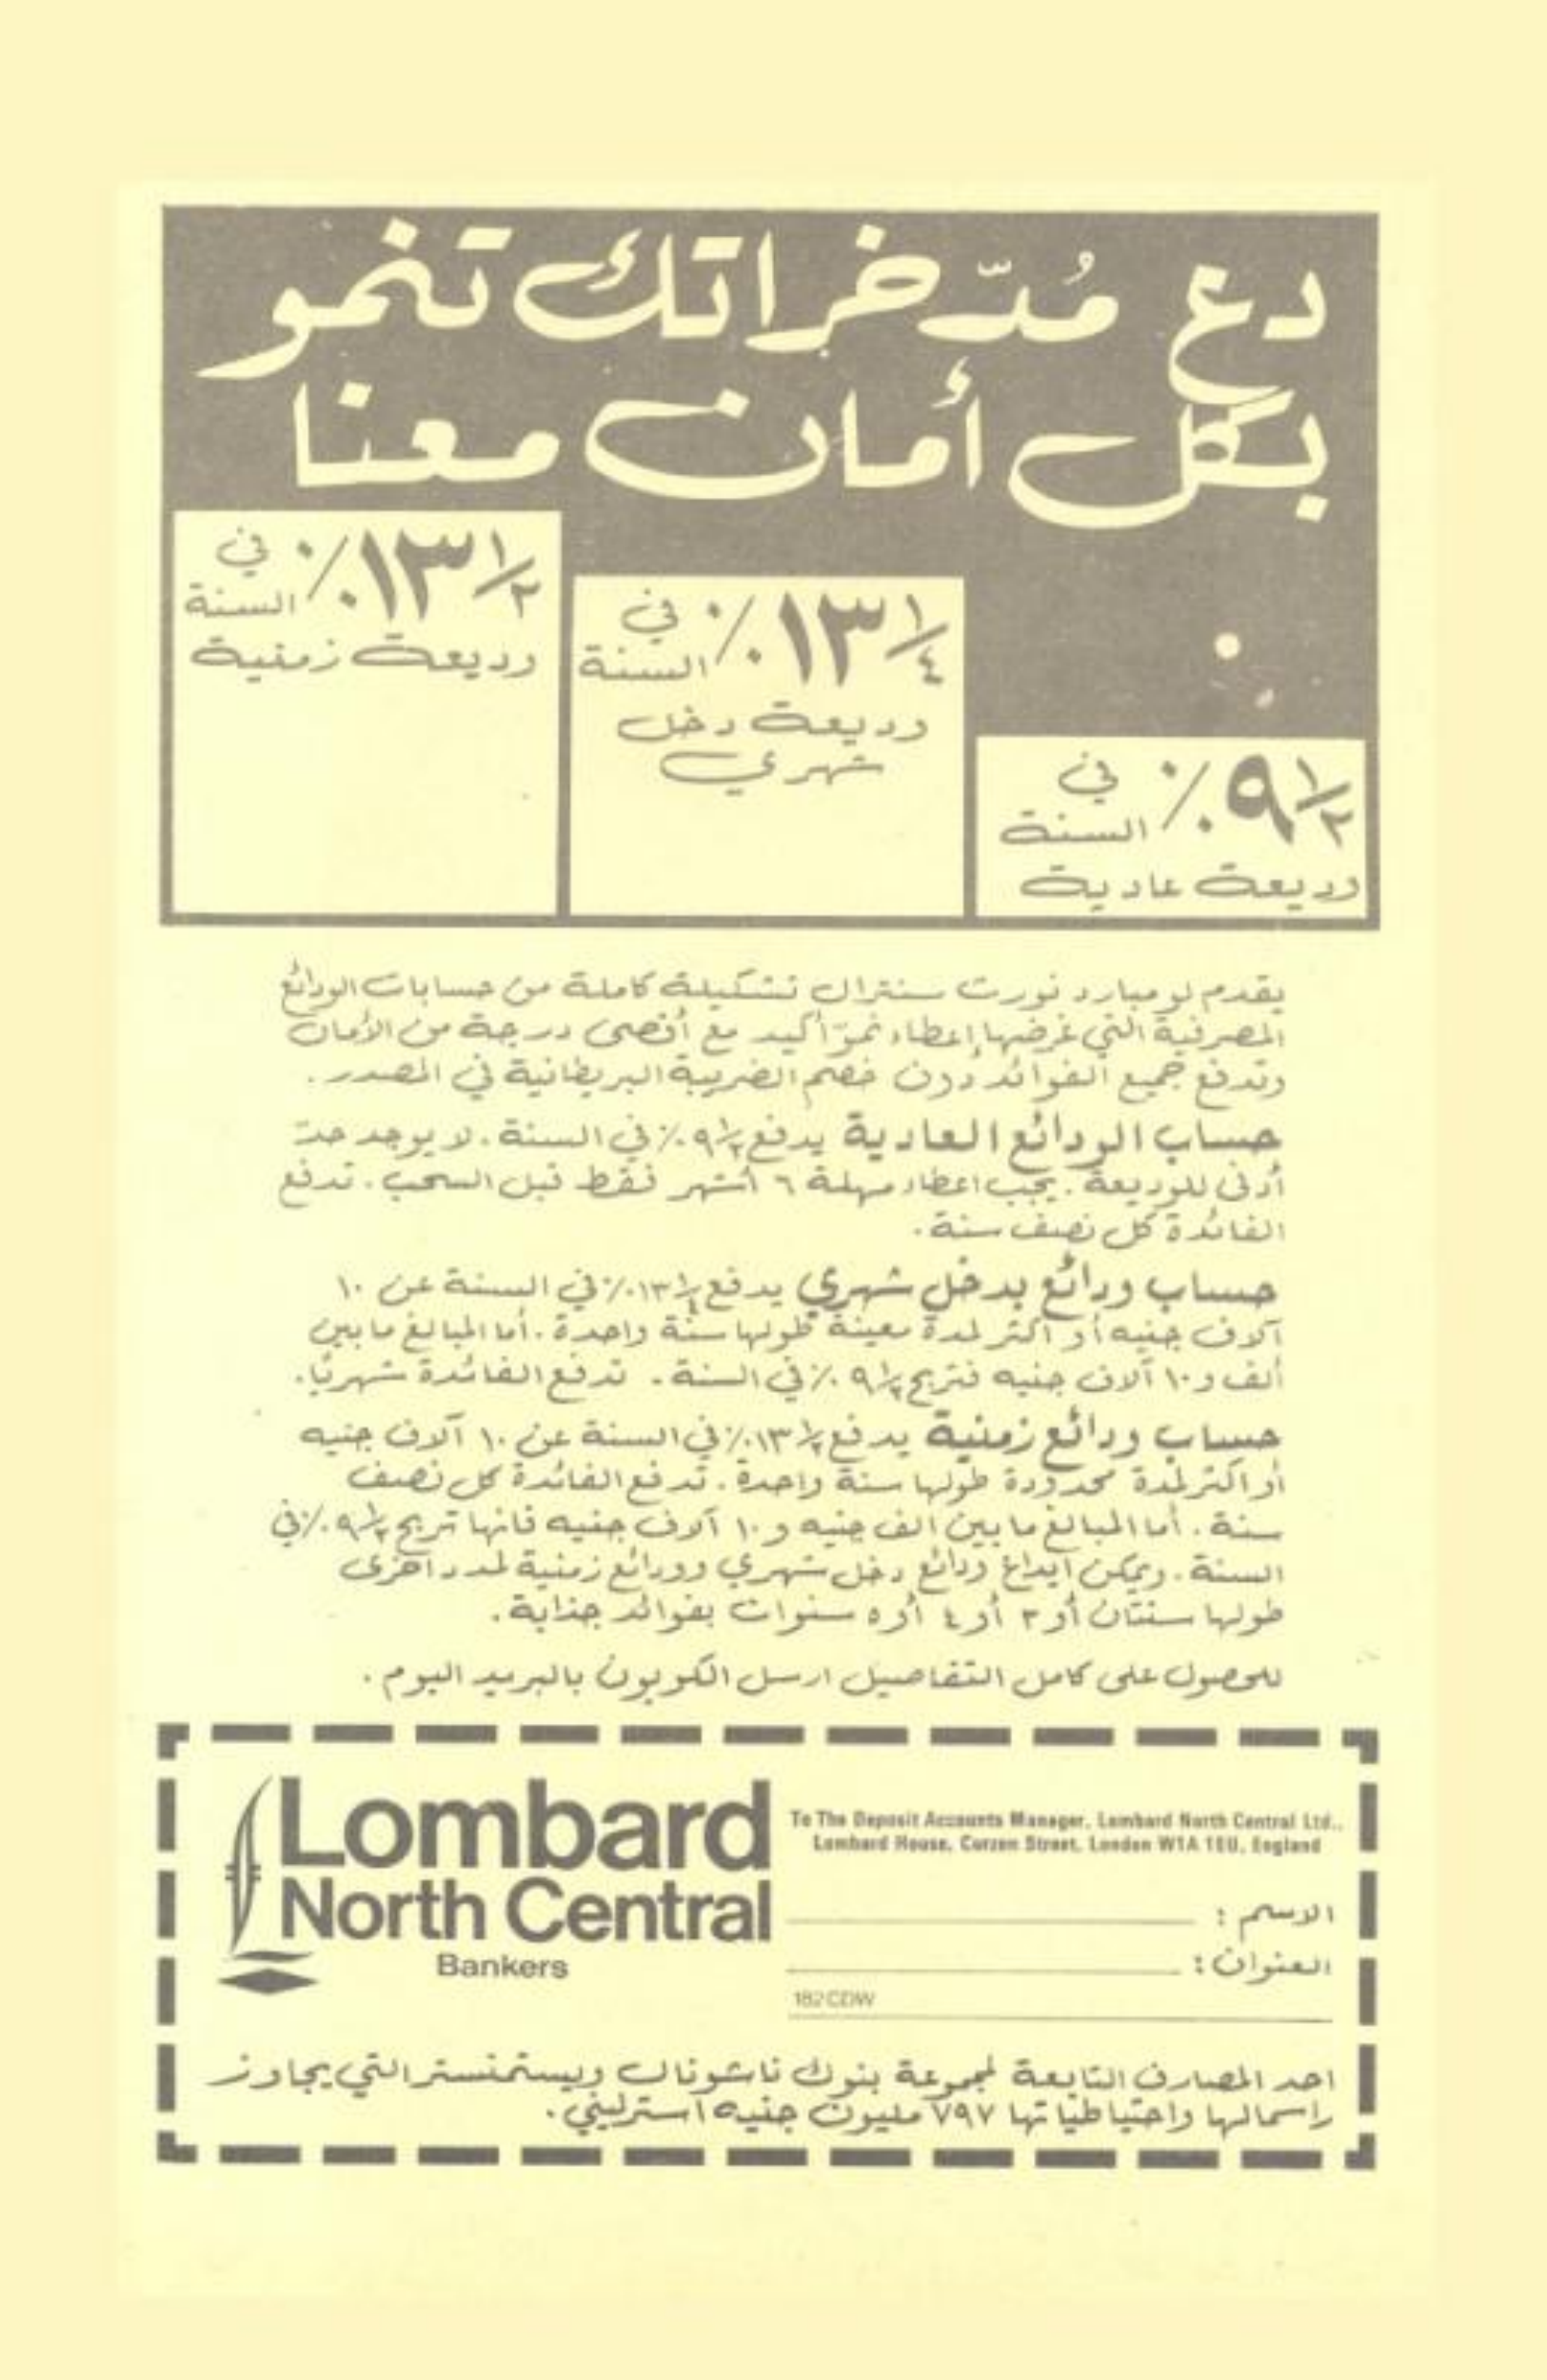 دع مُدّخراتك تنمو
بكل أمان معنا
١/٢ ١٣٪ في السنة
وديعة زمنية
١/٤ ١٣٪ في السنة
وديعة دخل
شهري
١/٢ ٩٪ في السنة
وديعة عادية
يقدم لومبارد نورث سنترال تشكيلة كاملة من حسابات الودائع
المصرفية التي غرضها إعطاء نموّ أكيد مع أقصى درجة من الأمان
وتدفع جميع الفوائد دون خصم الضريبة البريطانية في المصدر .
حساب الودائع العادية يدفع ١/٢ ٩٪ في السنة . لا يوجد حدّ
أدنى للوديعة . يجب اعطاء مهلة ٦ أشهر فقط قبل السحب . تدفع
الفائدة كل نصف سنة .
حساب ودائع بدخل شهري يدفع ١/٤ ١٣٪ في السنة عن ١٠
آلاف جنيه أو أكثر لمدة معينة طولها سنة واحدة . أما المبالغ ما بين
ألف و١٠ آلاف جنيه فتربح ١/٢ ٩٪ في السنة . تدفع الفائدة شهريًا .
حساب ودائع زمنية يدفع ١/٢ ١٣٪ في السنة عن ١٠ آلاف جنيه
أو اكثر لمدة محدودة طولها سنة واحدة . تدفع الفائدة كل نصف
سنة . أما المبالغ ما بين الف جنيه و١٠ آلاف جنيه فانها تربح ١/٢ ٩٪ في
السنة . ويمكن ايداع ودائع دخل شهري وودائع زمنية لمدد اخرى
طولها سنتان أو ٣ أو ٤ أو ٥ سنوات بفوائد جذابة .
للحصول على كامل التفاصيل ارسل الكوبون بالبريد اليوم .
Lombard
North Central
Bankers
To The Deposit Accounts Manager, Lombard North Central Ltd.,
Lombard House, Curzon Street, London W1A 1EU, England
الاسم :
العنوان :
182 CDW
احد المصارف التابعة لمجموعة بنوك ناشونال ويستمنستر التي يجاوز
راسمالها واحتياطياتها ٧٩٧ مليون جنيه استرليني .